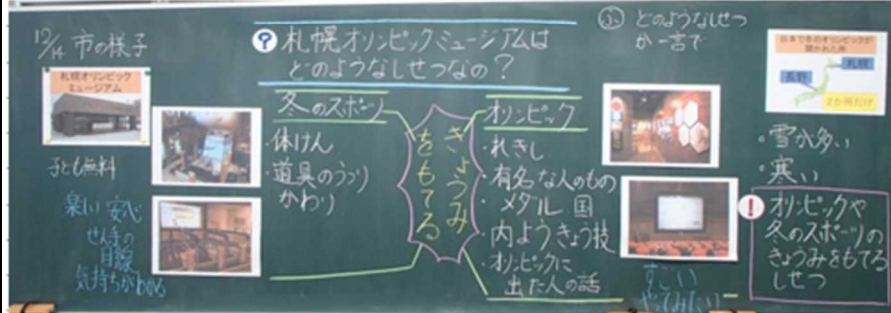 12/14 市の様子
札幌オリンピック
ミュージアム
子ども無料
楽しい 安心
せん手の
目線
気持ちがわかる
? 札幌オリンピックミュージアムは
どのようなしせつなの?
冬のスポーツ
・体けん
・道具のうつり
かわり
きょうみ
をもてる
オリンピック
・れきし
・有名な人のもの
・メダル 国
・内ようきょう技
・オリンピックに
出た人の話
すごい
やってみたい
ふ どのようなしせつ
か一言で
日本で冬のオリンピックが
開かれた所
札幌
長野
2か所だけ
・雪が多い
・寒い
! オリンピックや
冬のスポーツの
きょうみをもてる
しせつ